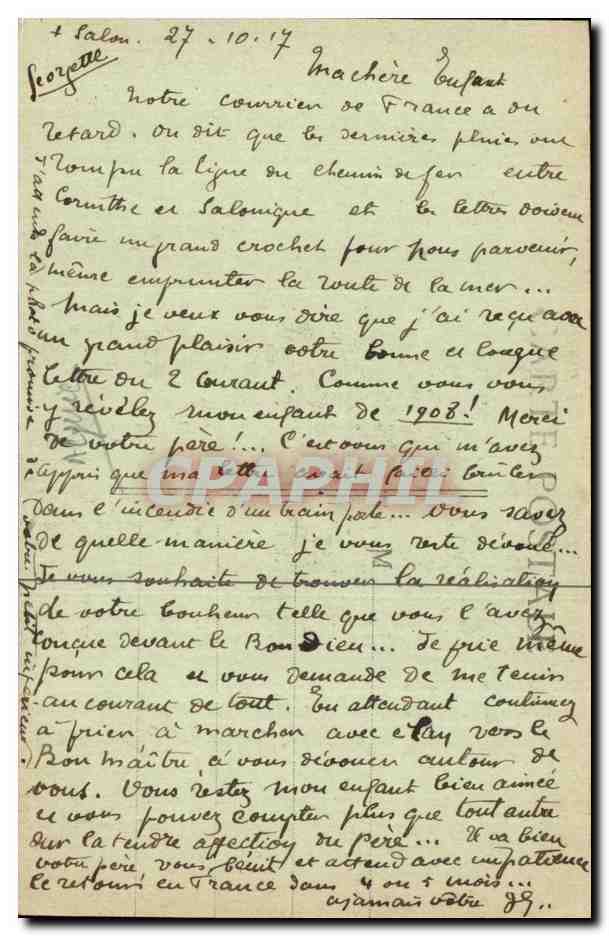 + Salon. 27.10.17
Georgette
Ma chère Enfant
Notre courrier de France a du
retard. On dit que les dernières pluies ont
rompu la ligne du chemin de fer entre
Corinthe et Salonique et les lettres doivent
faire un grand crochet pour nous parvenir,
même emprunter la route de la mer...
Mais je veux vous dire que j'ai reçu avec
un grand plaisir votre bonne et longue
lettre du 2 courant. Comme vous vous
y révélez mon enfant de 1908! Merci
de votre père!... C'est vous qui m'avez
appris que ma lettre avait failli brûler
dans l'incendie d'un train poste... Vous savez
de quelle manière je vous reste dévoué...
Je vous souhaite de trouver la réalisation
de votre bonheur telle que vous l'avez
conçue devant le Bon Dieu... Je prie même
pour cela et vous demande de me tenir
au courant de tout. En attendant continuez
à prier à marcher avec élan vers le
Bon Maître à vous dévouer autour de
vous. Vous restez mon enfant bien aimée
et vous pouvez compter plus que tout autre
sur la tendre affection du Père... Il va bien
votre père vous bénit et attend avec impatience
le retour en France dans 4 ou 5 mois...
a jamais votre
J'attends la photo promise de votre petit
CARTE POSTALE
CPARPHIL